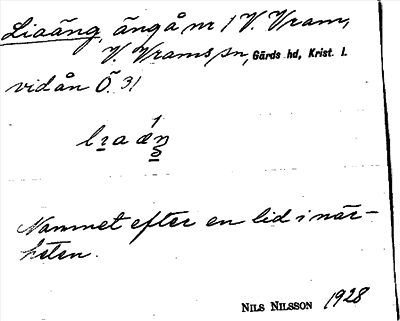 Liaäng, äng å nr 1 V. Vram,
V. Vrams sn, Gärds hd, Krist. l.
vid ån Ö. 31
Namnet efter en lid i när-
heten.
NILS NILSSON 1928